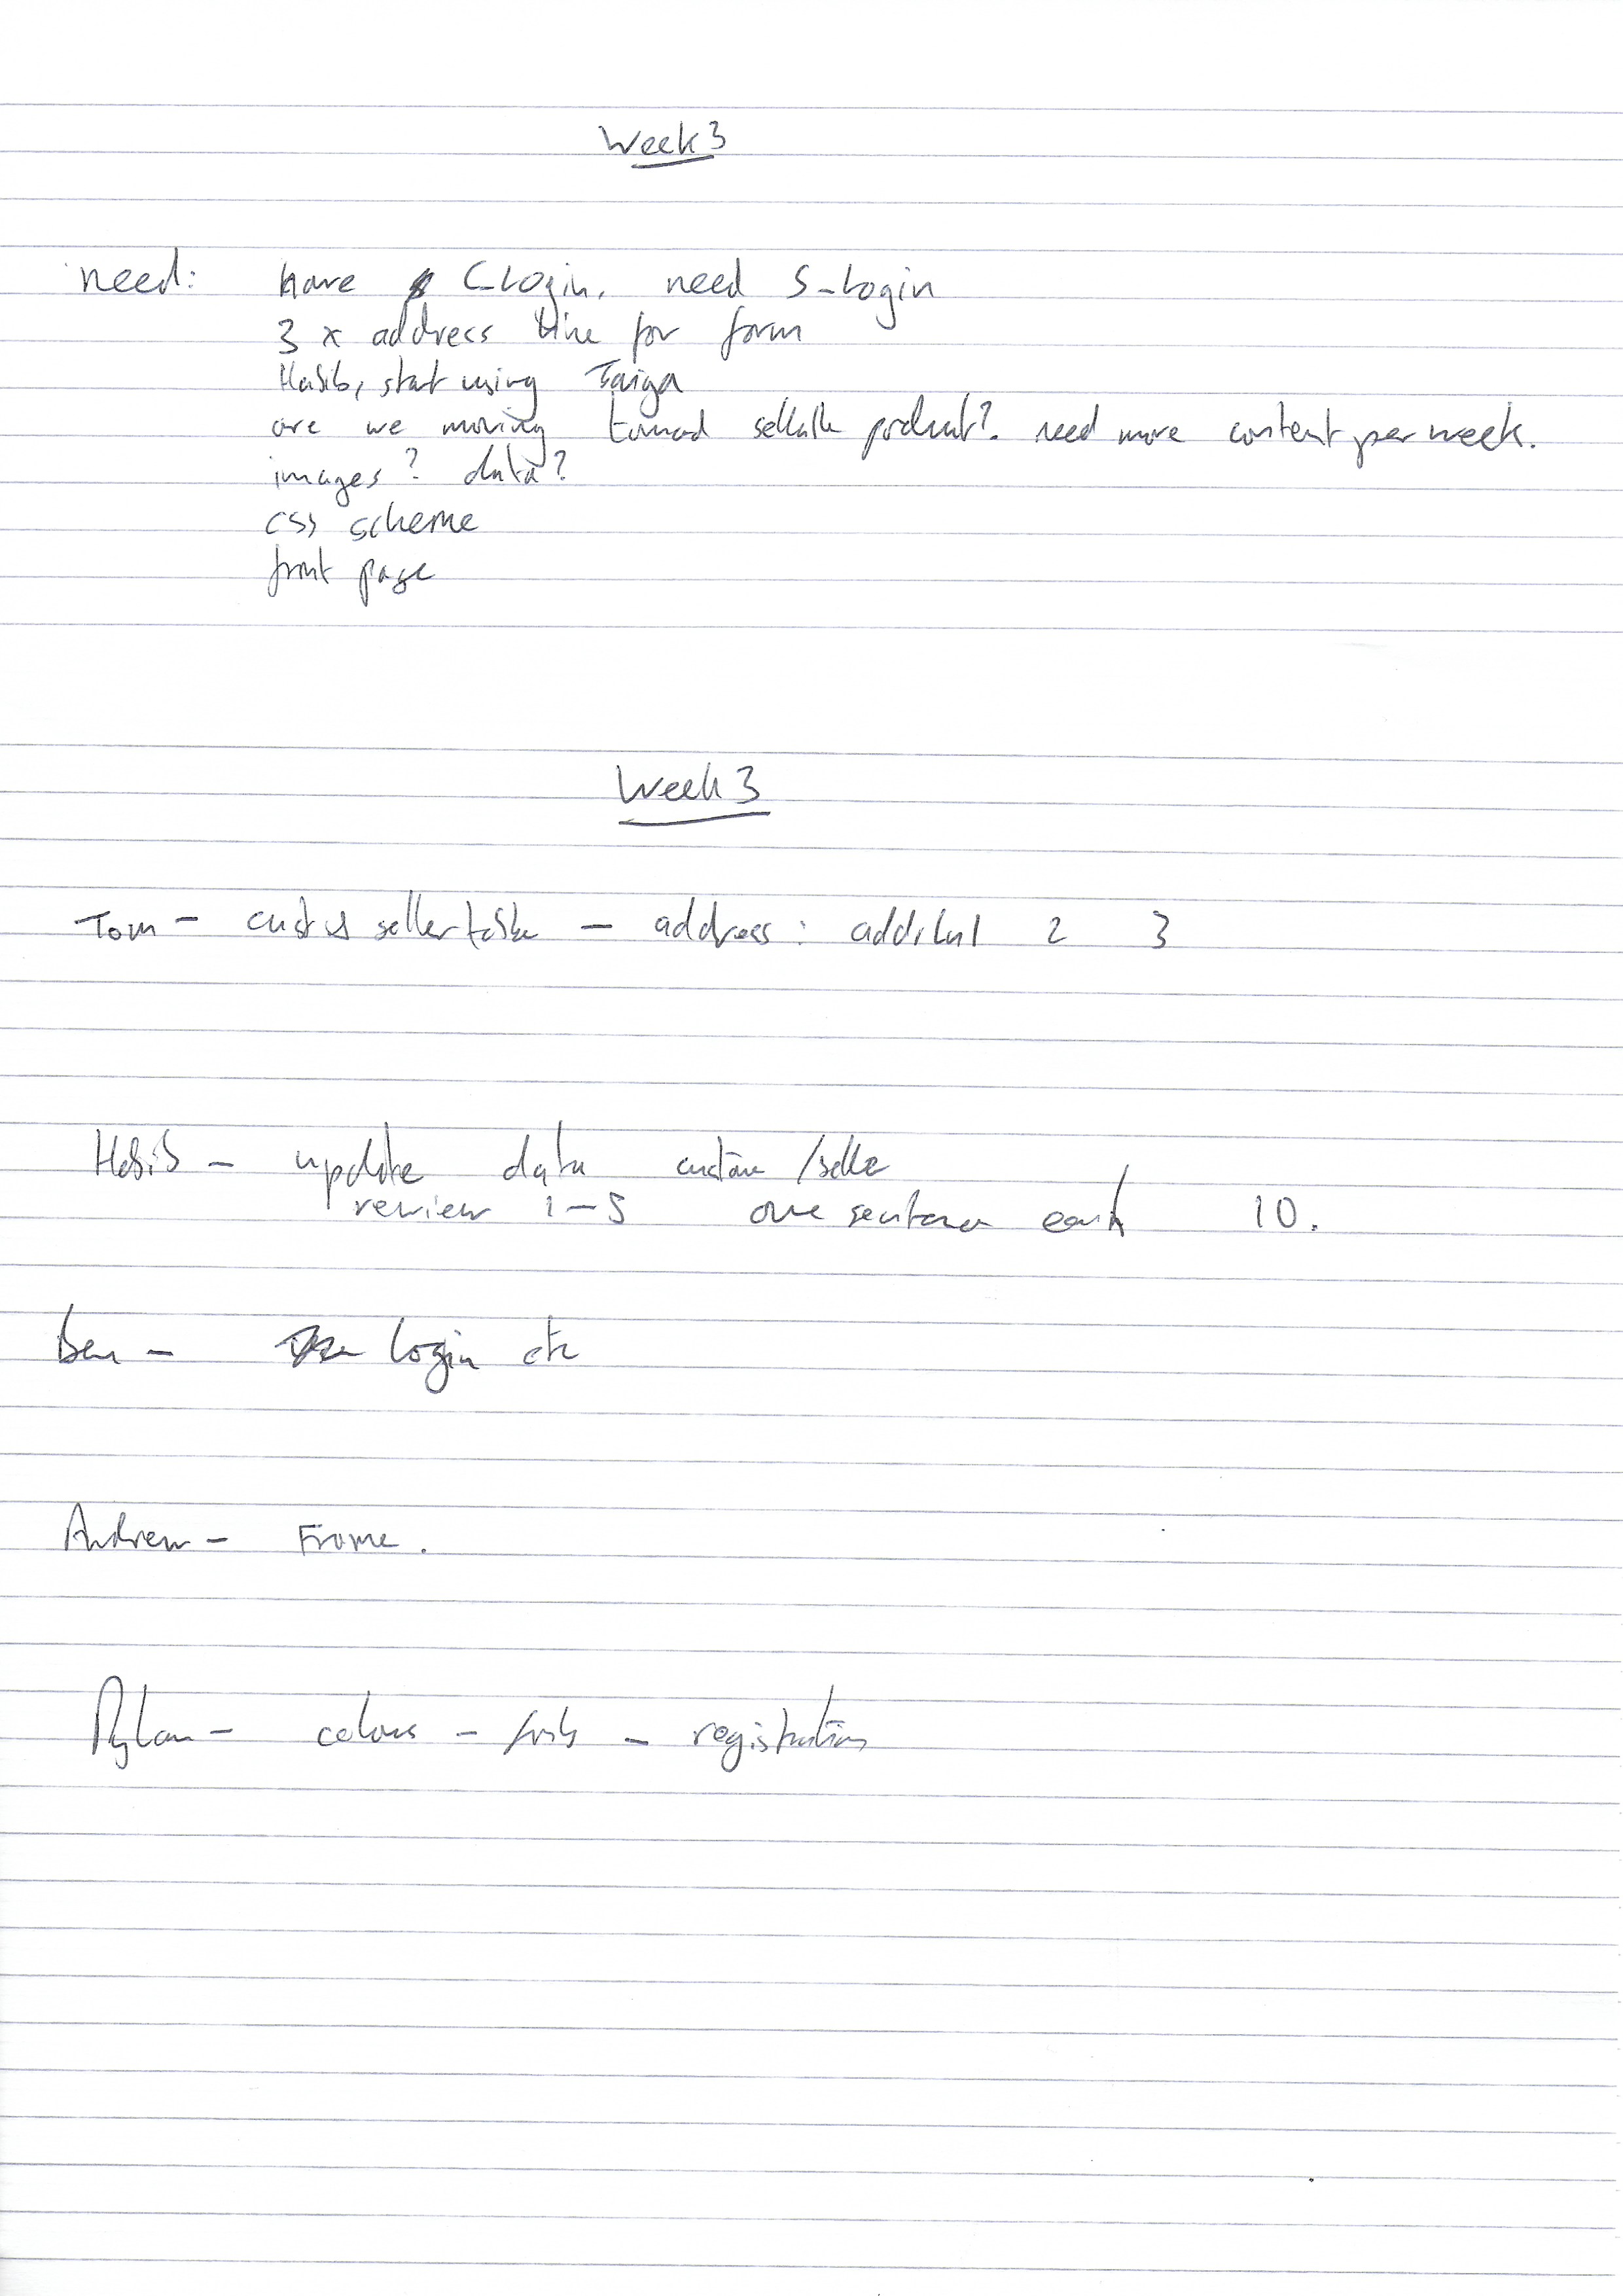 Week 3
need: have C_Login. need S_Login
3 x address line for form
Habib, start using Taiga
are we moving toward sellable product? need more content per week.
images? data?
css scheme
front page
Week 3
Tom - seller - address: 2 3
Habib - update data /
review 1-5 one sentence each 10.
Ben - login etc
Andrew - Frame.
Dylan - colours - - registration